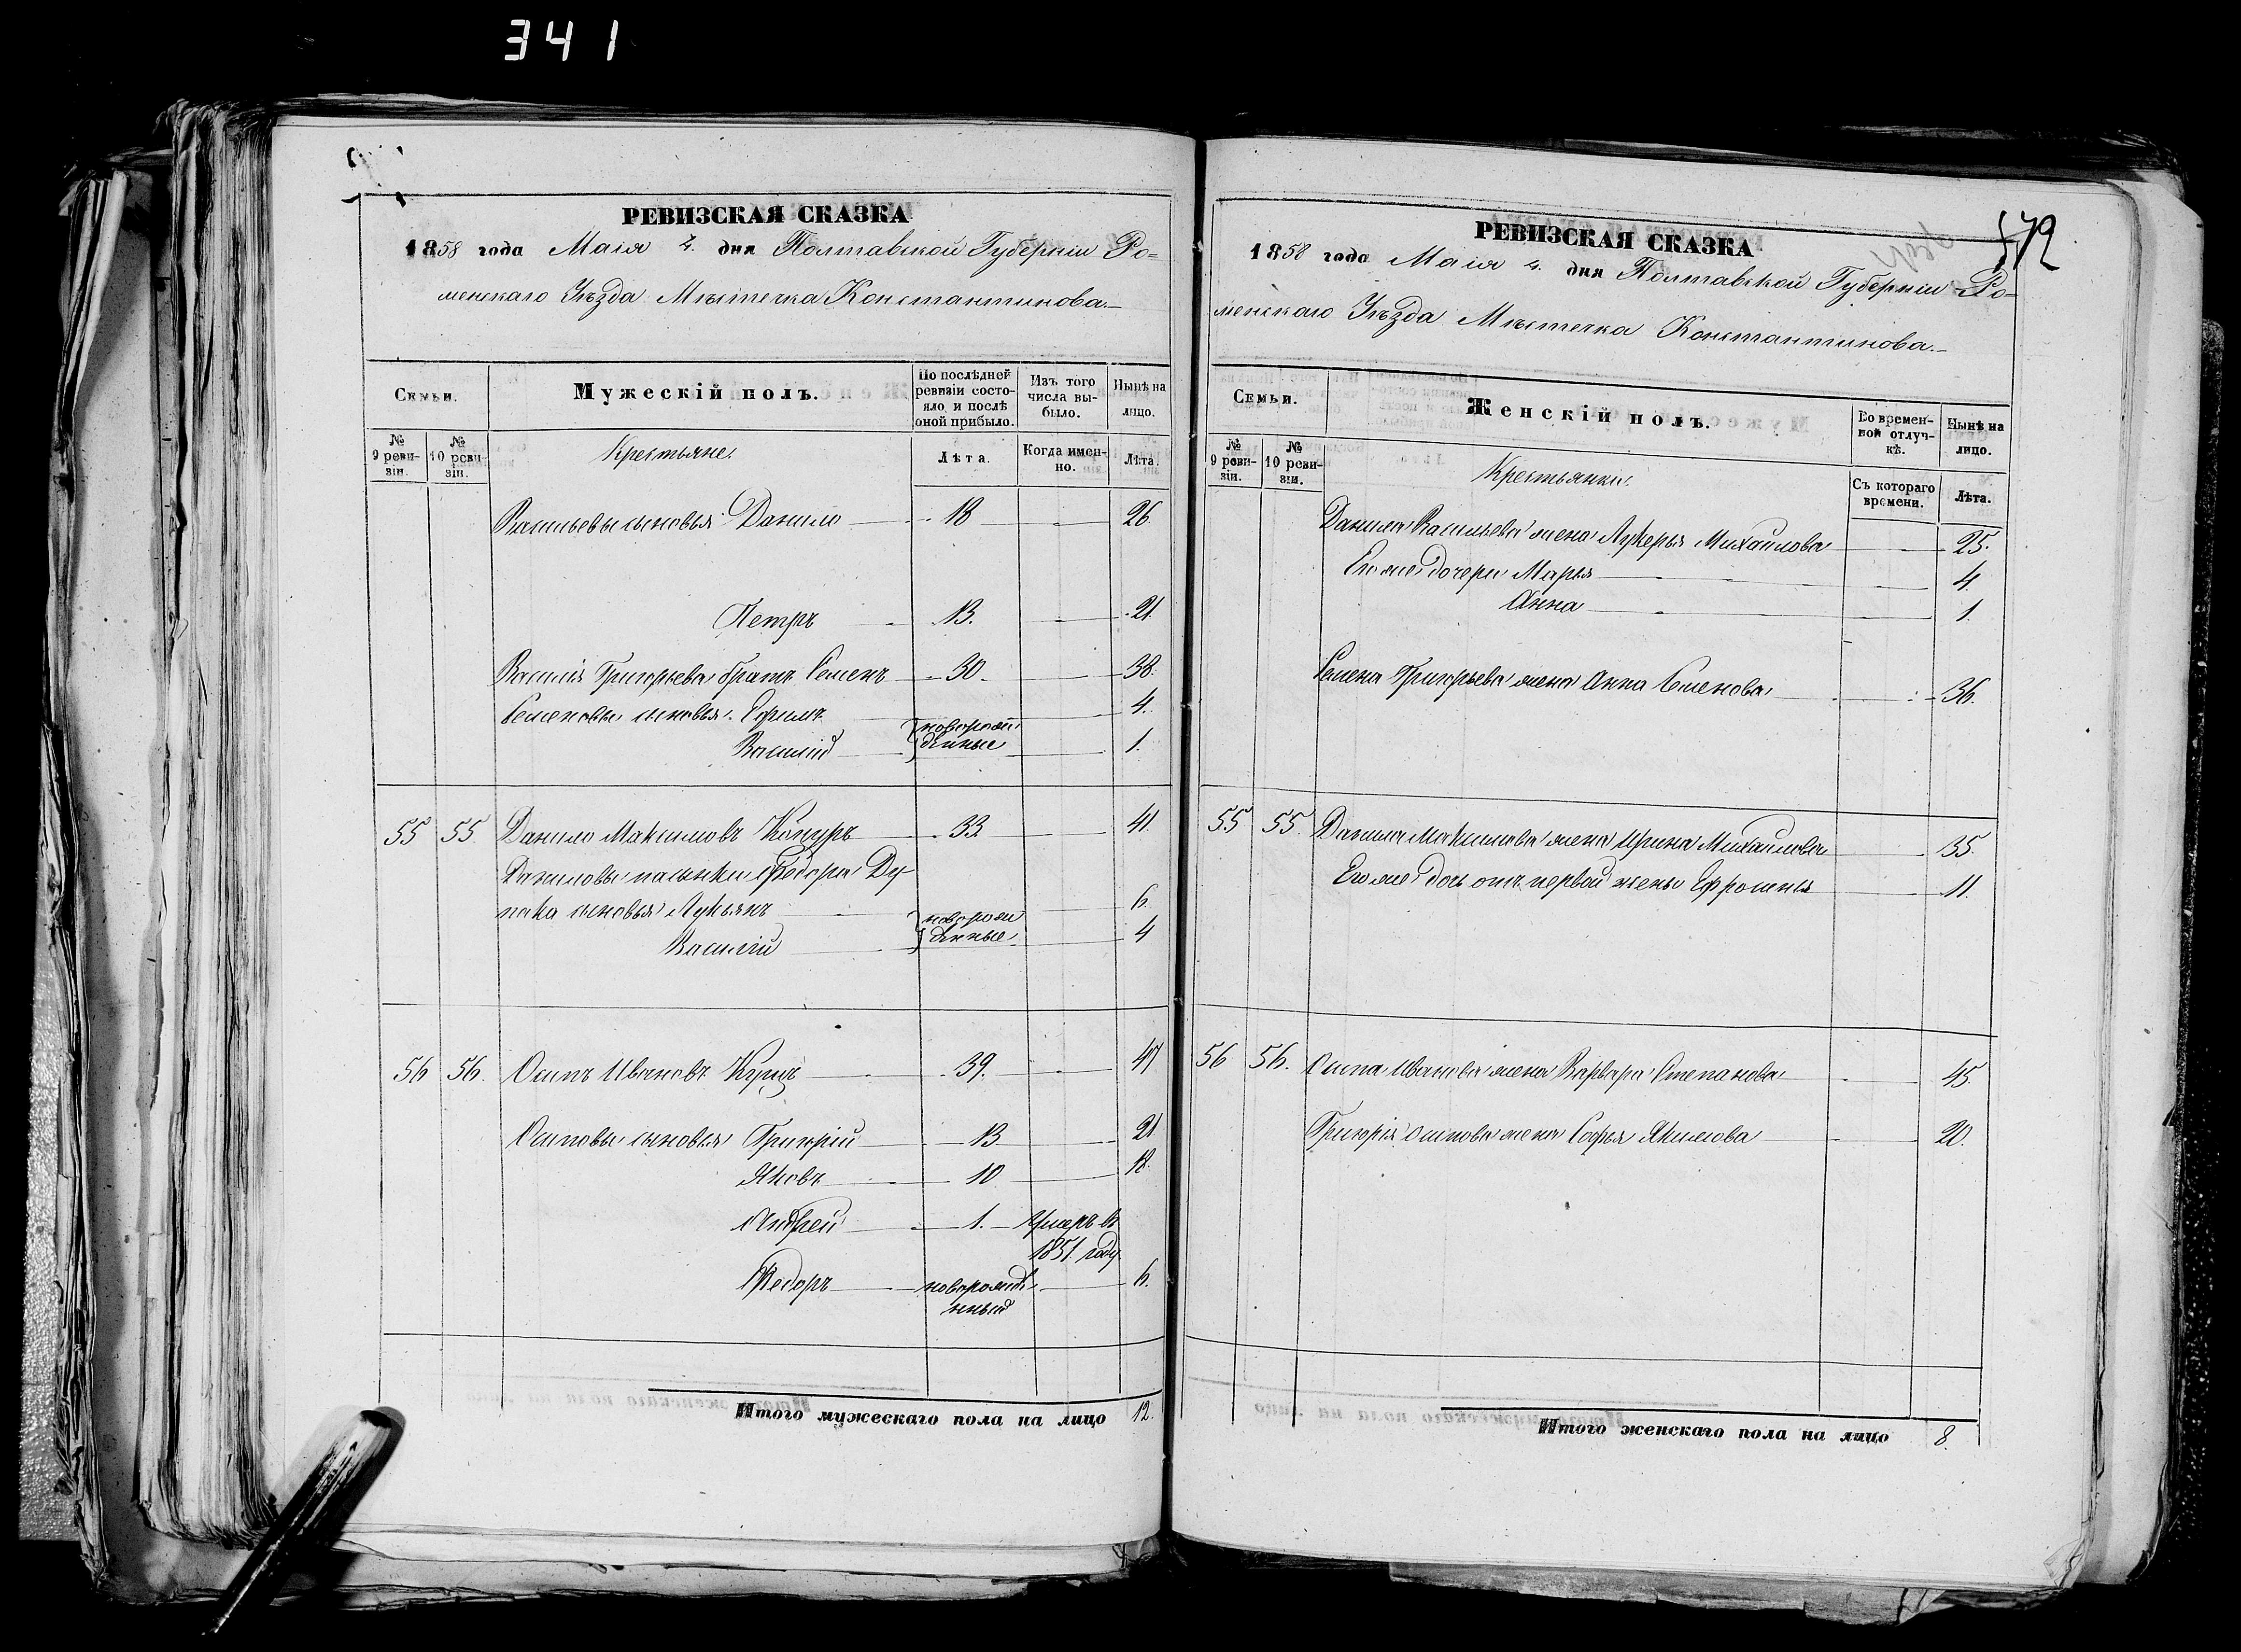 341
РЕВИЗСКАЯ СКАЗКА
1858 года Маія 4. дня Полтавской Губерніи Ро=
менскаго Уѣзда Мѣстечка Константинова.
Семьи.
Мужескій полъ.
По послѣдней ревизіи состояло и послѣ оной прибыло.
Изъ того числа выбыло.
Нынѣ на лицо.
№ 9 ревизіи.
№ 10 ревизіи.
Крестьяне.
Лѣта.
Когда именно.
Лѣта.
Васильевы сыновья Данило 18 26.
Петръ 13. 21
Василія Григорьева братъ Семенъ 30. 38.
Семеновы сыновья Ефимъ 4.
Василій новорожденные 1.
55 55. Данило Максимовъ 33 41.
Даниловы пасынки Федора
сыновья Лукьянъ 6.
Василій новорожденные 4
56 56. Осипъ Ивановъ 39. 47
Осиповы сыновья Григорій 13 21
Яковъ 10 18.
Андрей 1. Умеръ въ
1851. году
Федоръ новорожденный 6.
Итого мужескаго пола на лицо 12.
РЕВИЗСКАЯ СКАЗКА
1858 года Маія 4. дня Полтавской Губерніи Ро=
менскаго Уѣзда Мѣстечка Константинова.
Семьи.
Женскій полъ.
Во временной отлучкѣ.
Нынѣ на лицо.
№ 9 ревизіи.
№ 10 ревизіи.
Крестьянки.
Съ котораго времени.
Лѣта.
Данила Васильева жена Лукерья Михайлова 25.
Его же дочери Марья 4.
Анна 1.
Семена Григорьева жена Анна Семенова 36.
55 55. Данила Максимова жена Ирина Михайлова 35.
Его же дочь отъ первой жены Ефросинья 11.
56 56. Осипа Иванова жена Варвара Степанова 45.
Григорія Осипова жена Софья Якимова 20.
Итого женскаго пола на лицо 8.